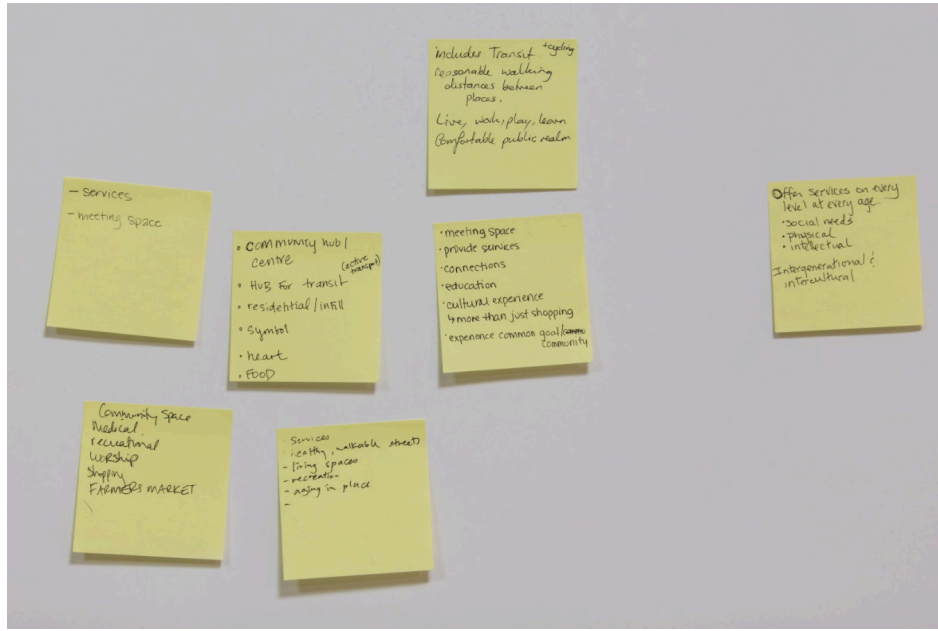 includes Transit +cycling
reasonable walking
distances between
places.
Live, work, play, learn
Comfortable public realm
- Services
- meeting Space
• COMMUNITY HUB/
CENTRE
• HUB FOR transit (active transpo)
• residential/infill
• Symbol
• heart
• FOOD
• meeting space
• provide services
• connections
• education
• cultural experience
↳ more than just shopping
• experience common goal/
community
Offer services on every
level at every age
• social needs
• physical
• intellectual
Intergenerational &
intercultural
Community Space
Medical
recreational
WORSHIP
Shopping
FARMERS MARKET
- Services
- healthy, walkable streets
- living spaces
- recreation
- aging in place
-